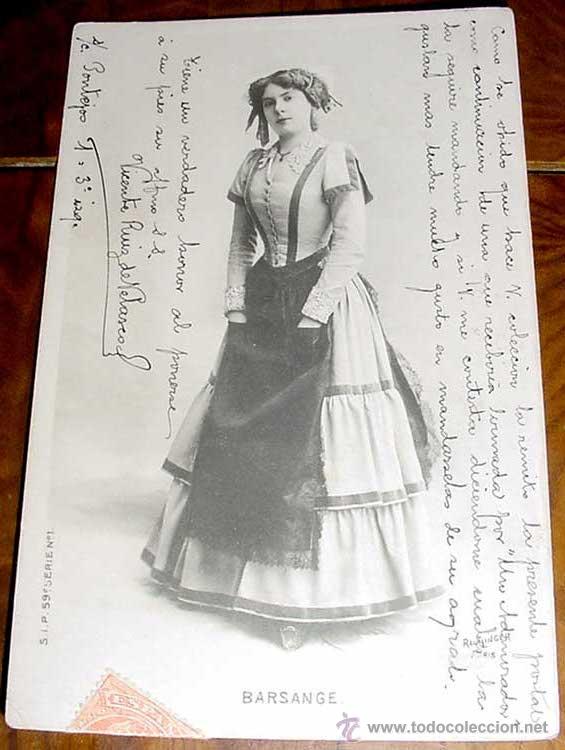 Como he oido que hace V. coleccion la remito la presente postal
como continuacion de una que recibiria firmada por "Un Admirador"
la seguire mandando y si V. me contesta diciendome cual la
gustan mas tendre mucho gusto en mandarselas de su agrado.
Tiene un verdadero honor al ponerse
a sus pies su affmo S. S.
Vicente Ruiz de Velasco
S/c. Pontejos 1 = 3º izq.
S.I.P. 59º SERIE Nº 1.
REUTLINGER
PARIS
BARSANGE
www.todocoleccion.net